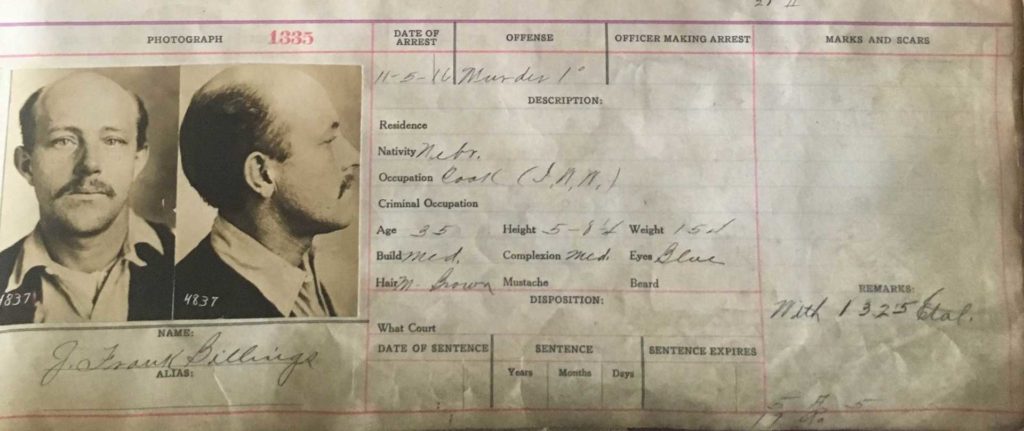 PHOTOGRAPH 1335
DATE OF ARREST
OFFENSE
OFFICER MAKING ARREST
MARKS AND SCARS
11-5-16 Murder 1°
DESCRIPTION:
Residence
Nativity Nebr.
Occupation Cook (I.W.W.)
Criminal Occupation
Age 35 Height 5-8 1/4 Weight
Build Med. Complexion Med. Eyes Blue
Hair M. Brown Mustache Beard
4837
4837
NAME:
J. Frank Billings
ALIAS:
DISPOSITION:
What Court
DATE OF SENTENCE SENTENCE SENTENCE EXPIRES
Years Months Days
REMARKS:
With 1325 Etal.